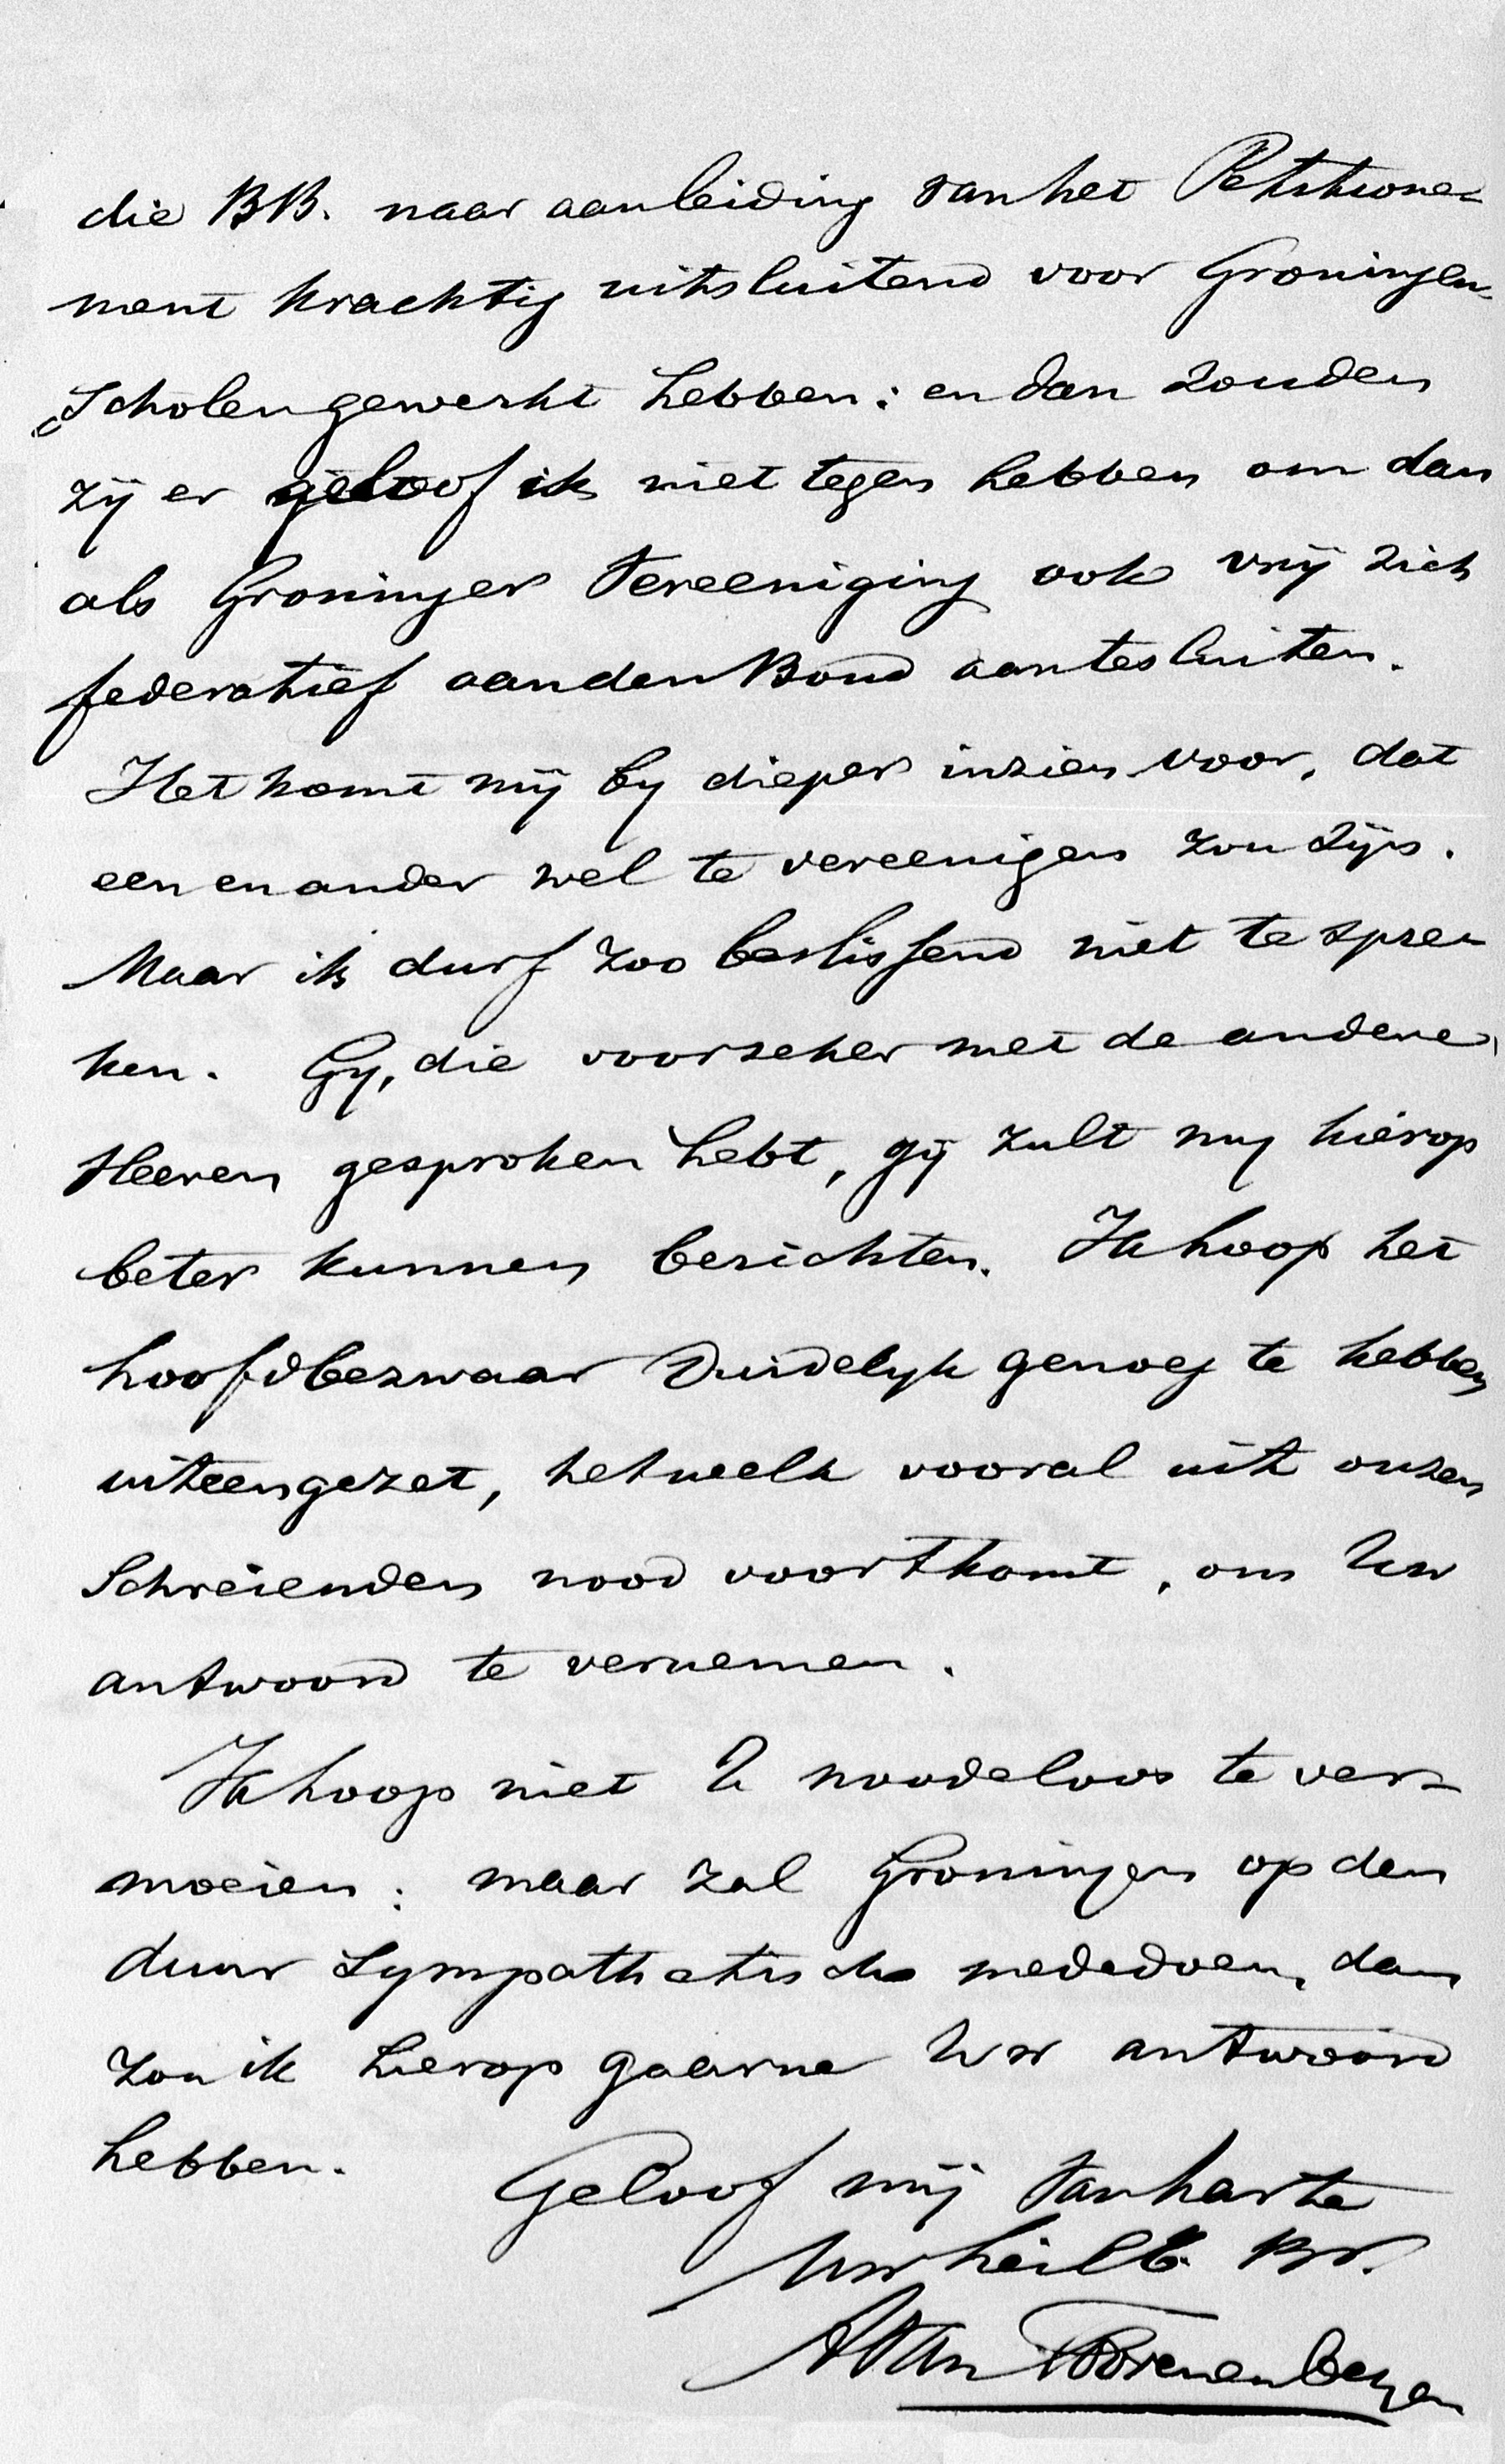 die BB. naar aanleiding van het Petitione-
ment krachtig uitsluitend voor Groningen-
Scholen gewerkt hebben: en dan zouden
zij er geloof ik niet tegen hebben om dan
als Groninger Vereeniging ook vrij zich
federatief aan den Bond aantesluiten.
Het komt mij by dieper inzien voor, dat
een en ander wel te vereenigen zou zijn.
Maar ik durf zoo beslissend niet te spre-
ken. Gy, die voorzeker met de andere
Heeren gesproken hebt, gij zult my hierop
beter kunnen berichten. Ik hoop het
hoofdbezwaar duidelyk genoeg te hebben
uiteengezet, hetwelk vooral uit onzen
Schreienden nood voortkomt, om Uw
antwoord te vernemen.
Ik hoop niet U noodeloos te ver-
moeien: maar zal Groningen op den
duur Sympathetisch mededoen, dan
zou ik hierop gaarne Uw antwoord
hebben.
Geloof mij van harte
Uw heilb. Br.
A van Toorenenbergen